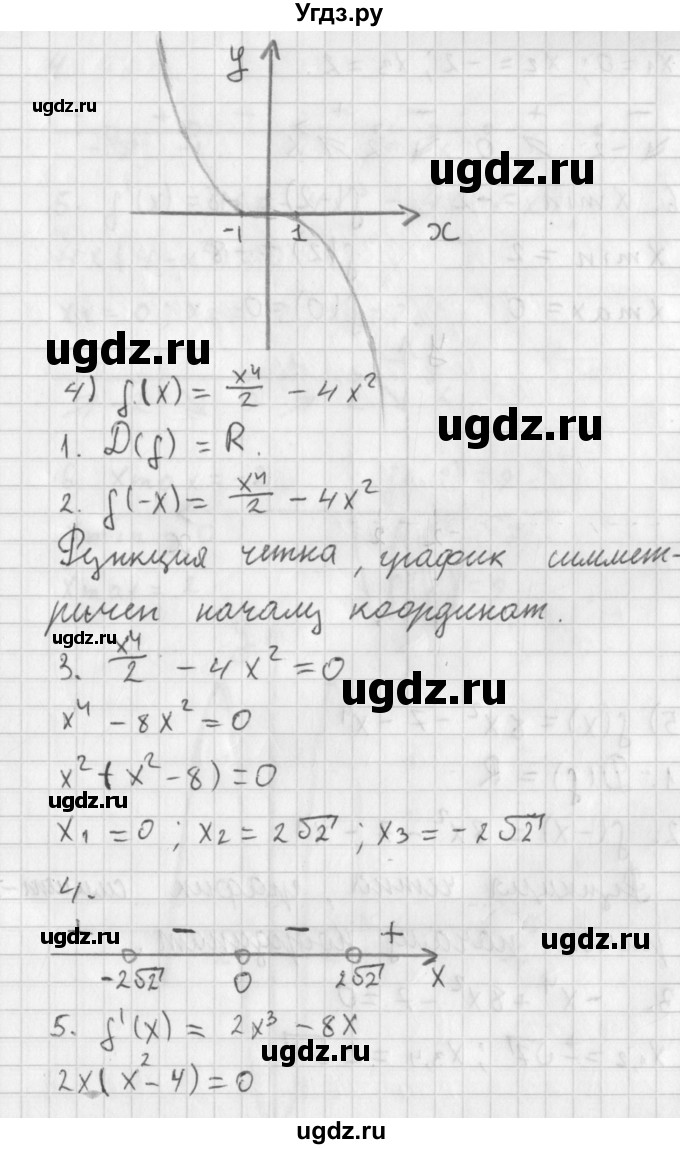 Угдз.ру
y
ugdz.ru
ugdz.ru
-1 1 x
ugdz.ru
4) f(x) = x⁴/2 - 4x²
ugdz.ru
1. D(f) = R.
2. f(-x) = x⁴/2 - 4x²
Функция четна, график симмет-
ричен началу координат.
ugdz.ru
3. x⁴/2 - 4x² = 0
ugdz.ru
x⁴ - 8x² = 0
x²(x² - 8) = 0
ugdz.ru
x₁ = 0; x₂ = 2√2; x₃ = -2√2
4.
+ - - +
ugdz.ru
ugdz.ru
-2√2 0 2√2 x
5. f'(x) = 2x³ - 8x
ugdz.ru
2x(x² - 4) = 0
ugdz.ru